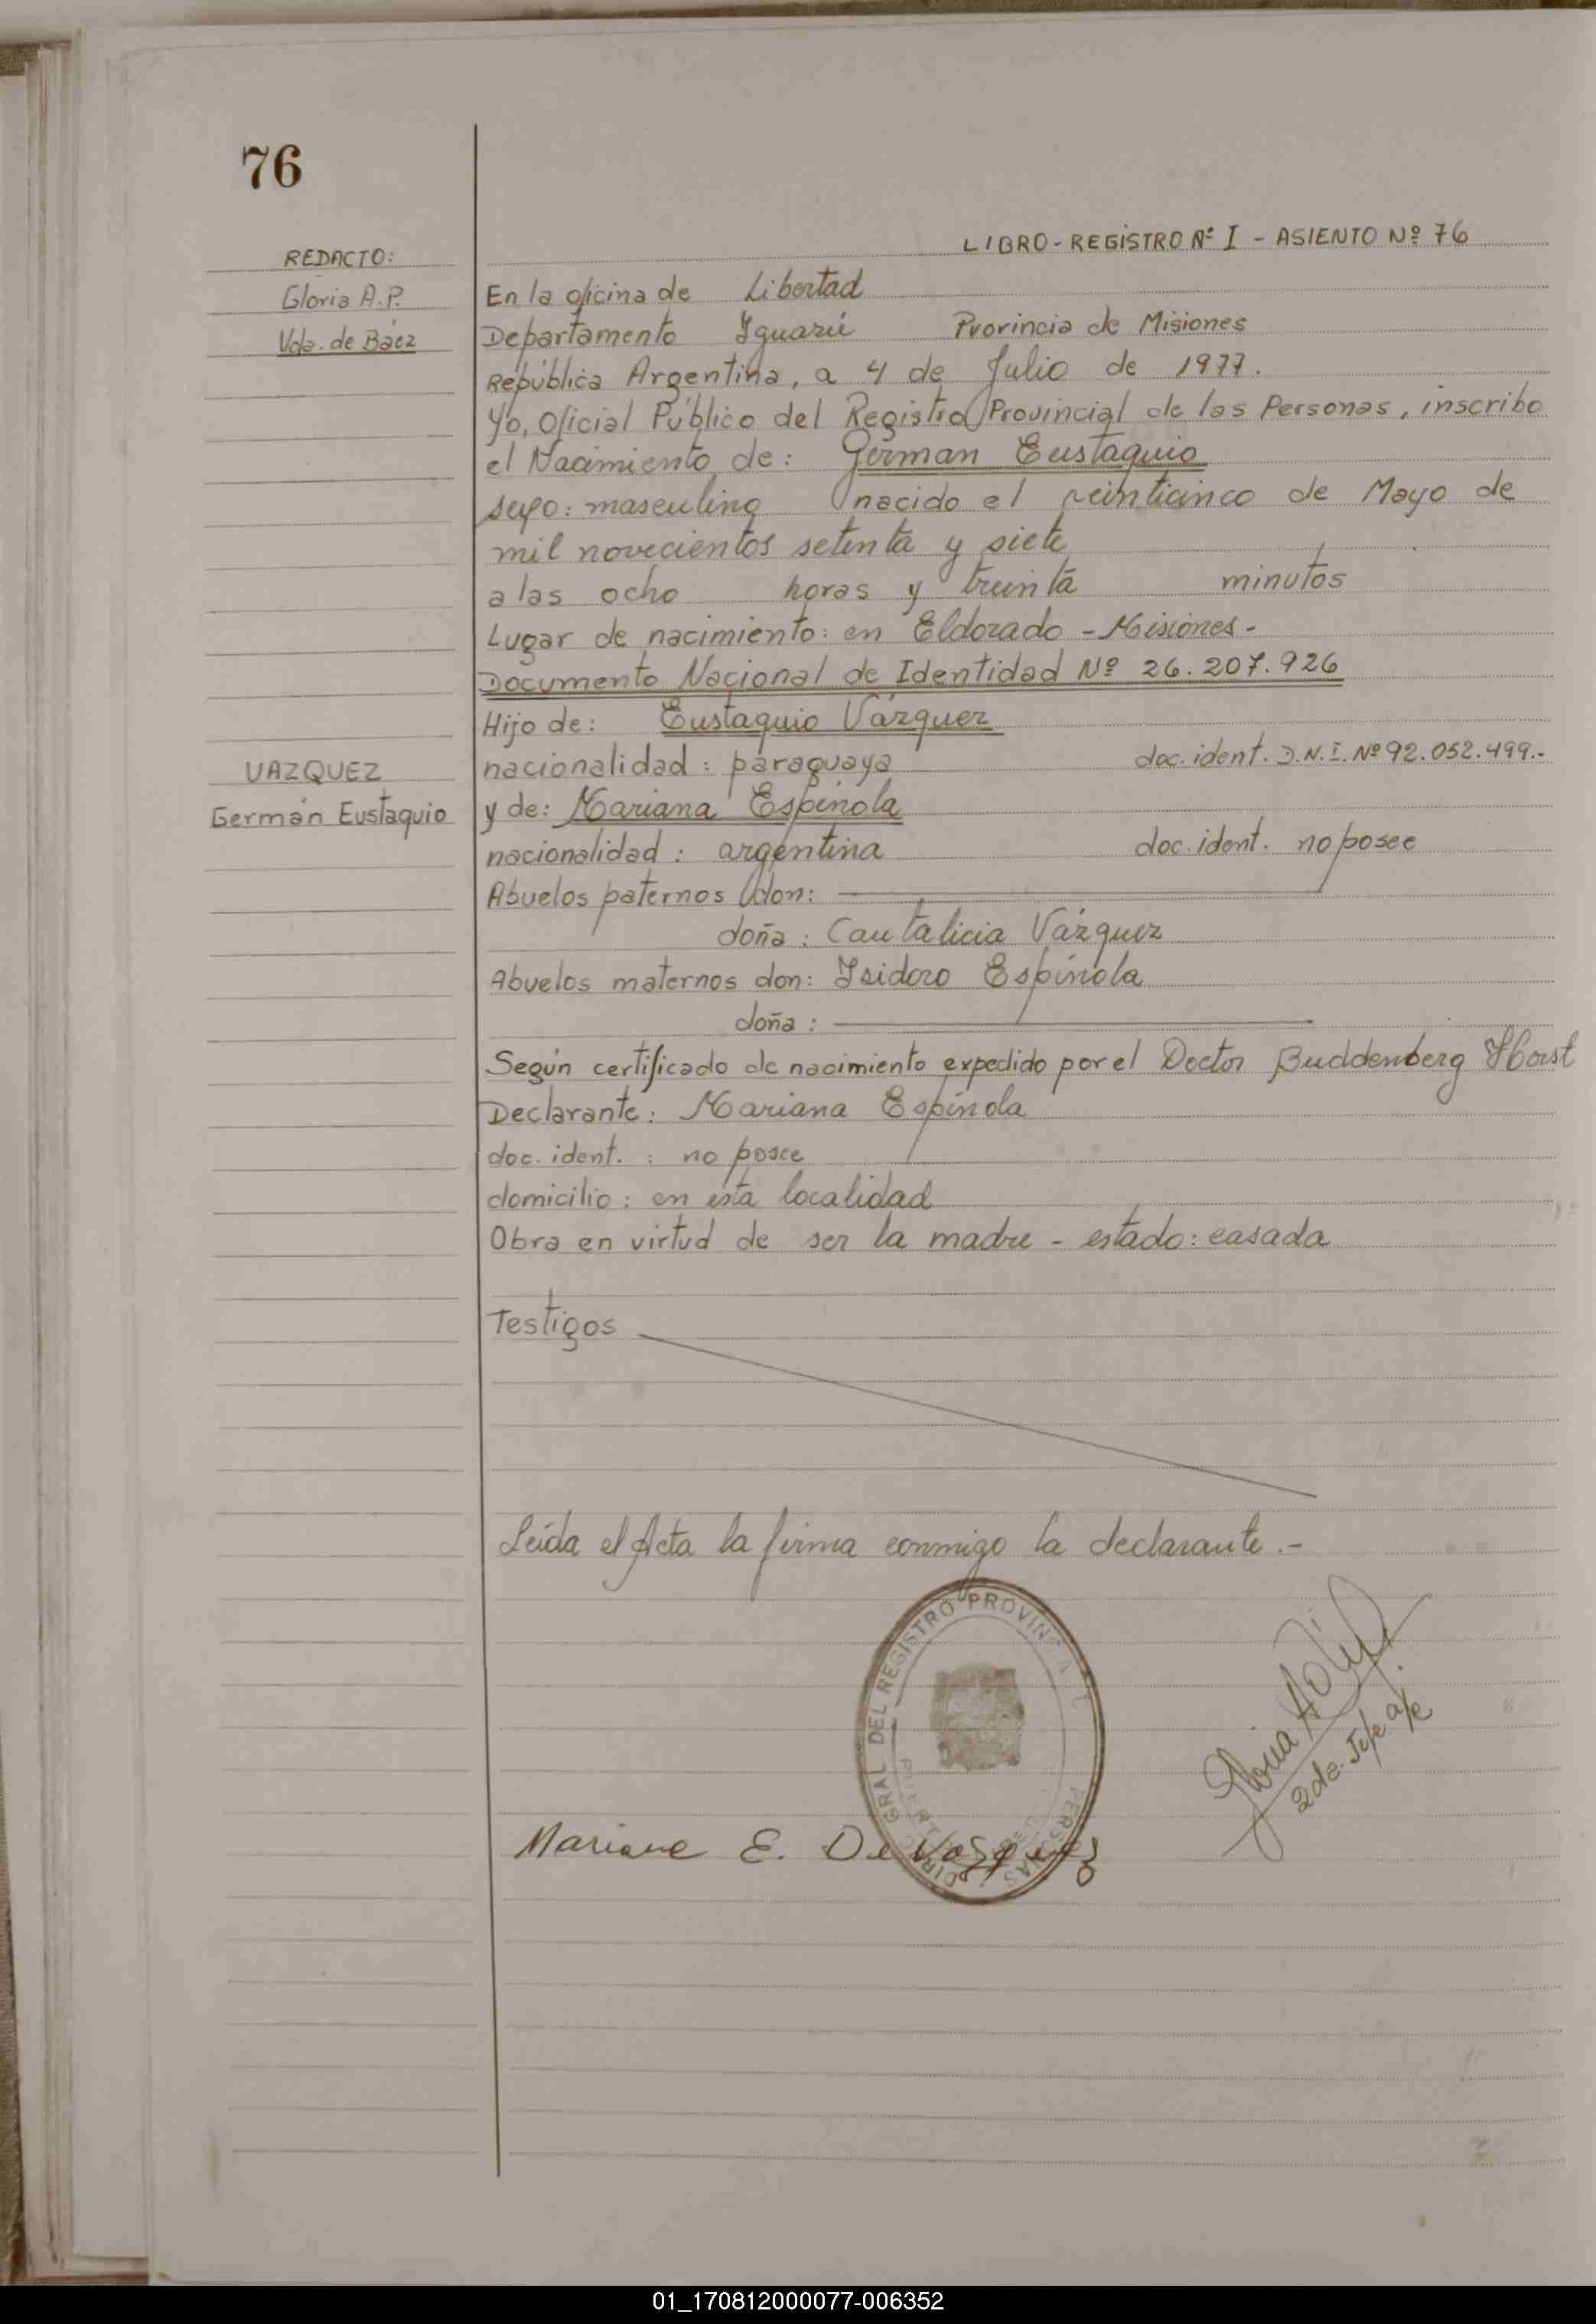 76
LIBRO-REGISTRO Nº I - ASIENTO Nº 76
REDACTO:
Gloria A.P.
Vda. de Báez
En la oficina de Libertad
Departamento Iguazú Provincia de Misiones
República Argentina, a 4 de Julio de 1977.
Yo, Oficial Público del Registro Provincial de las Personas, inscribo
el Nacimiento de: Germán Eustaquio
sexo: masculino nacido el veinticinco de Mayo de
mil novecientos setenta y siete
a las ocho horas y treinta minutos
Lugar de nacimiento: en Eldorado - Misiones -
Documento Nacional de Identidad Nº 26.207.926
Hijo de: Eustaquio Vázquez
nacionalidad: paraguaya doc. ident. D.N.I. Nº 92.052.499.-
VAZQUEZ
Germán Eustaquio
y de: Mariana Espínola
nacionalidad: argentina doc. ident. no posee
Abuelos paternos don:
doña: Cantalicia Vázquez
Abuelos maternos don: Isidoro Espínola
doña:
Según certificado de nacimiento expedido por el Doctor Buddenberg Horst
Declarante: Mariana Espínola
doc. ident.: no posee
domicilio: en esta localidad
Obra en virtud de ser la madre - estado: casada
Testigos
Leída el Acta la firma conmigo la declarante.-
GRAL DEL REGISTRO PROVINCIAL DE PERSONAS
Gloria
2da. Jefe a/c
Mariana E. De Vasquez
01_170812000077-006352